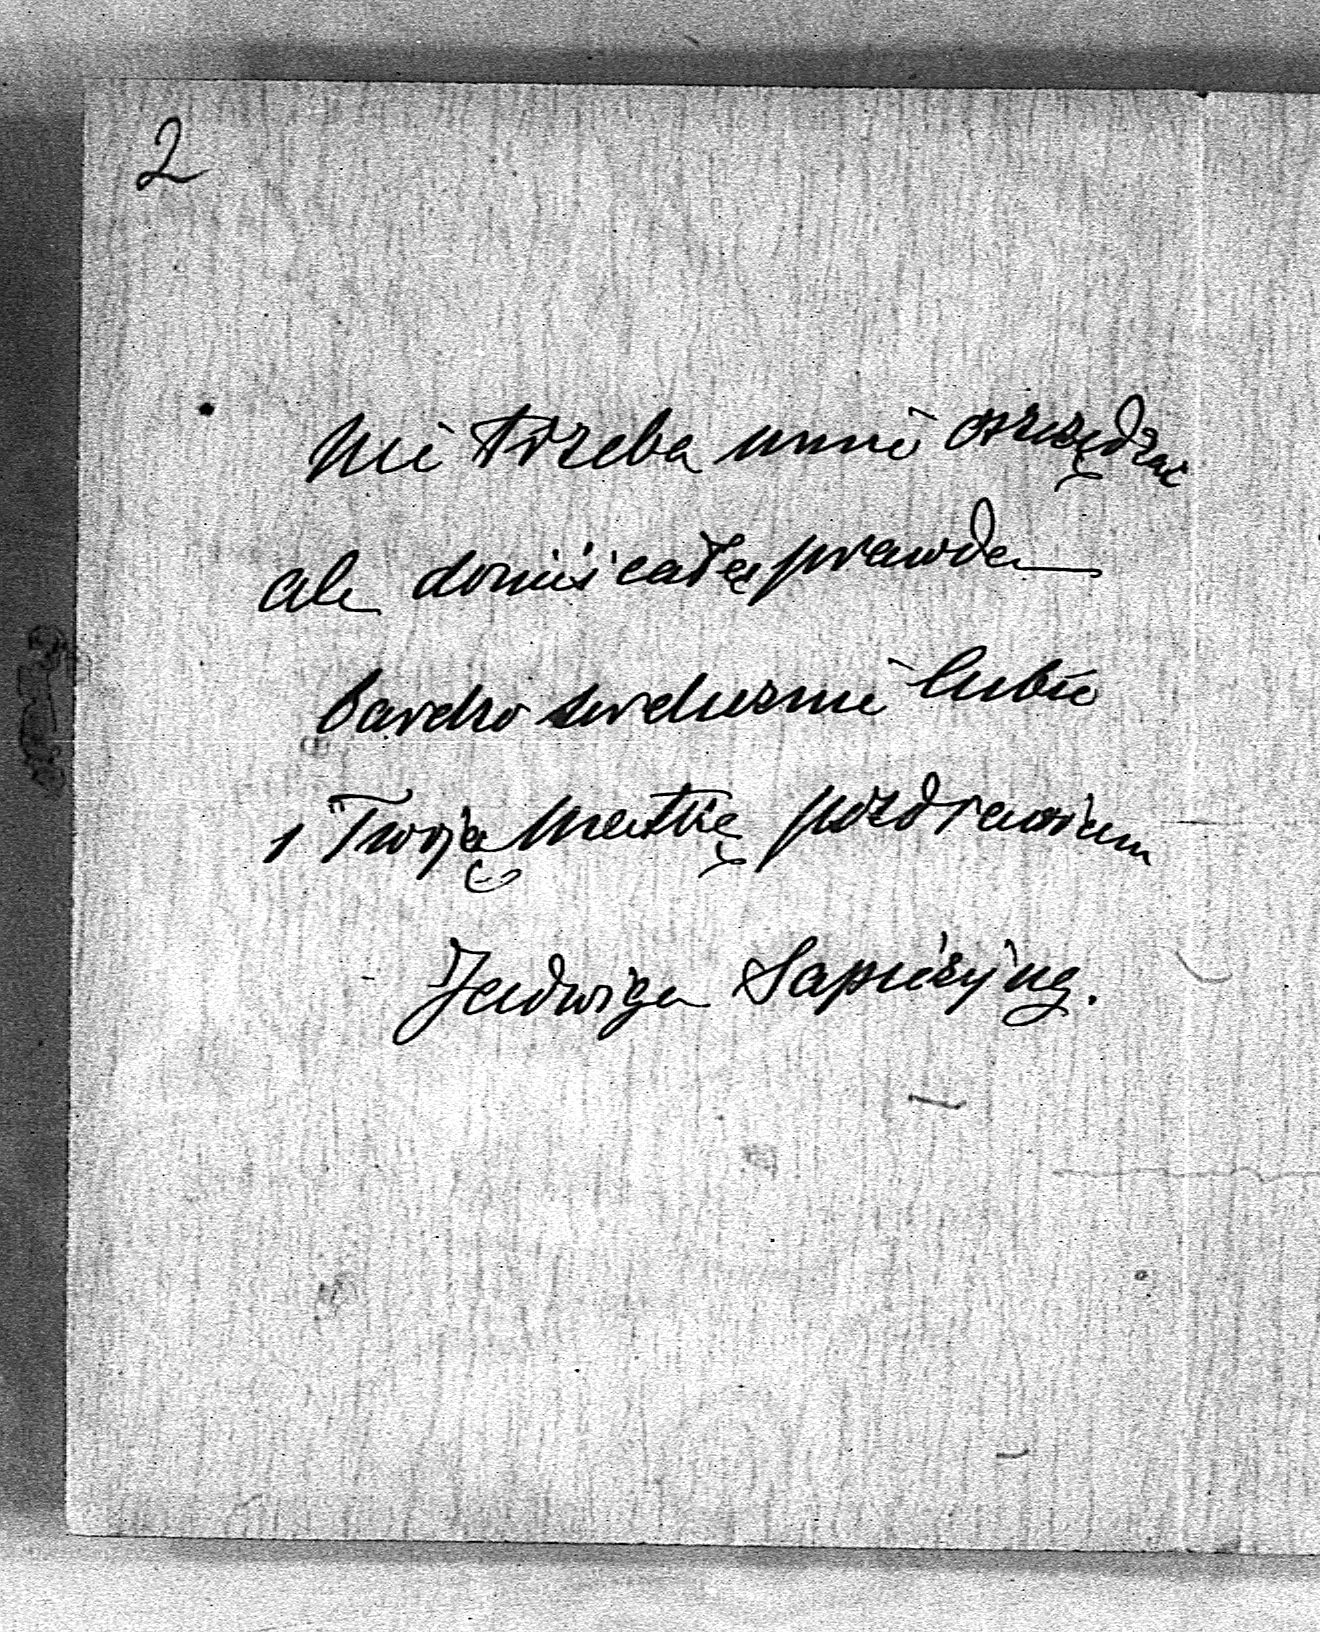 2
Nie trzeba mnie oszczędzać
ale donieś całą prawdę
Bardzo serdecznie Ciebie
i Twoją Matkę pozdrawiam
Jadwiga Sapieżyną.